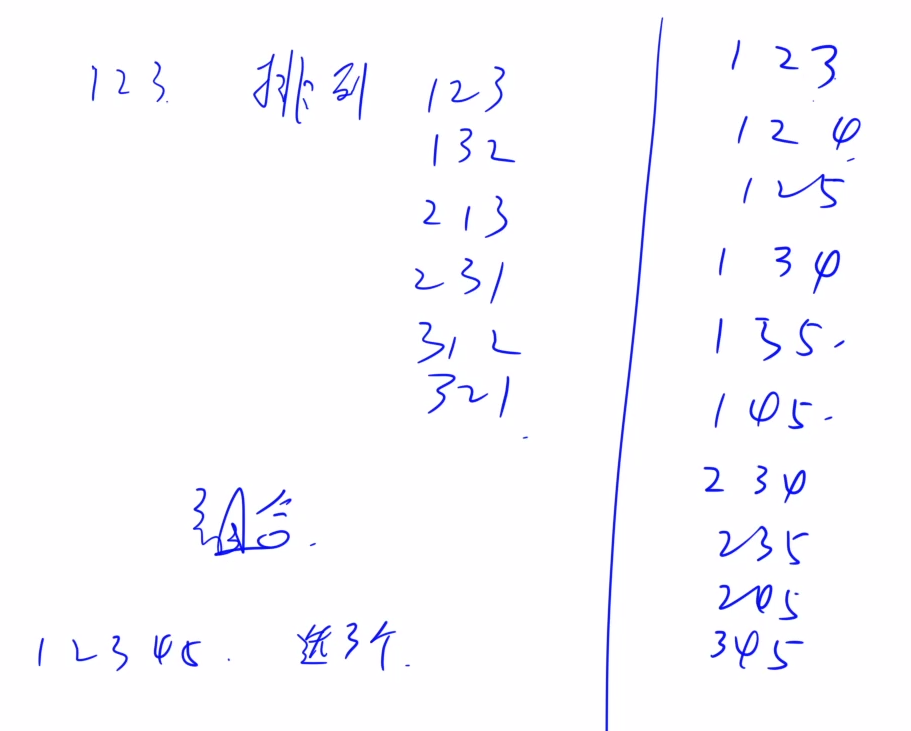 1 2 3 排列 1 2 3
1 3 2
2 1 3
2 3 1
3 1 2
3 2 1
组合.
1 2 3 4 5. 选3个.
1 2 3
1 2 4
1 2 5
1 3 4
1 3 5
1 4 5
2 3 4
2 3 5
2 4 5
3 4 5